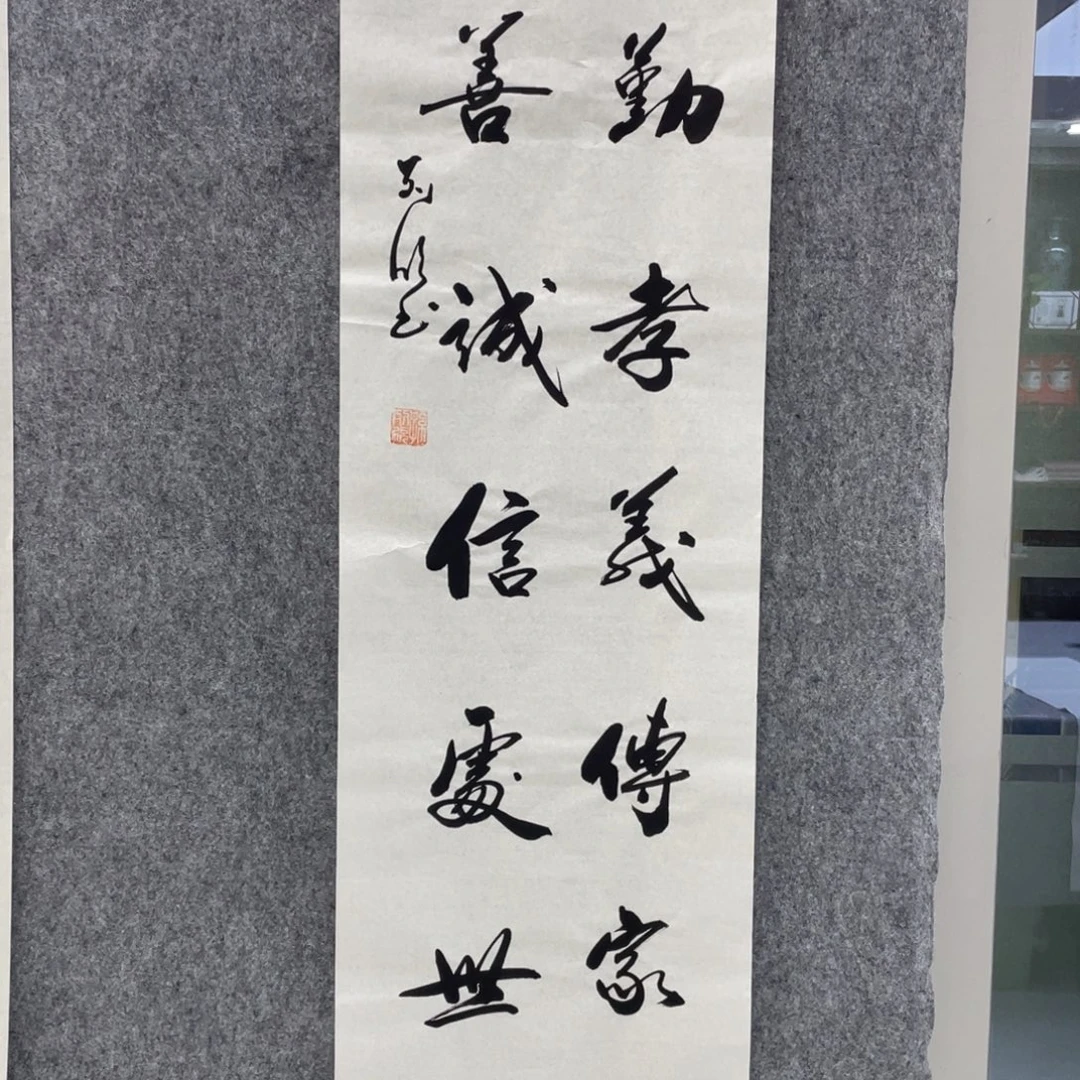 勤孝義傳家
善誠信處世